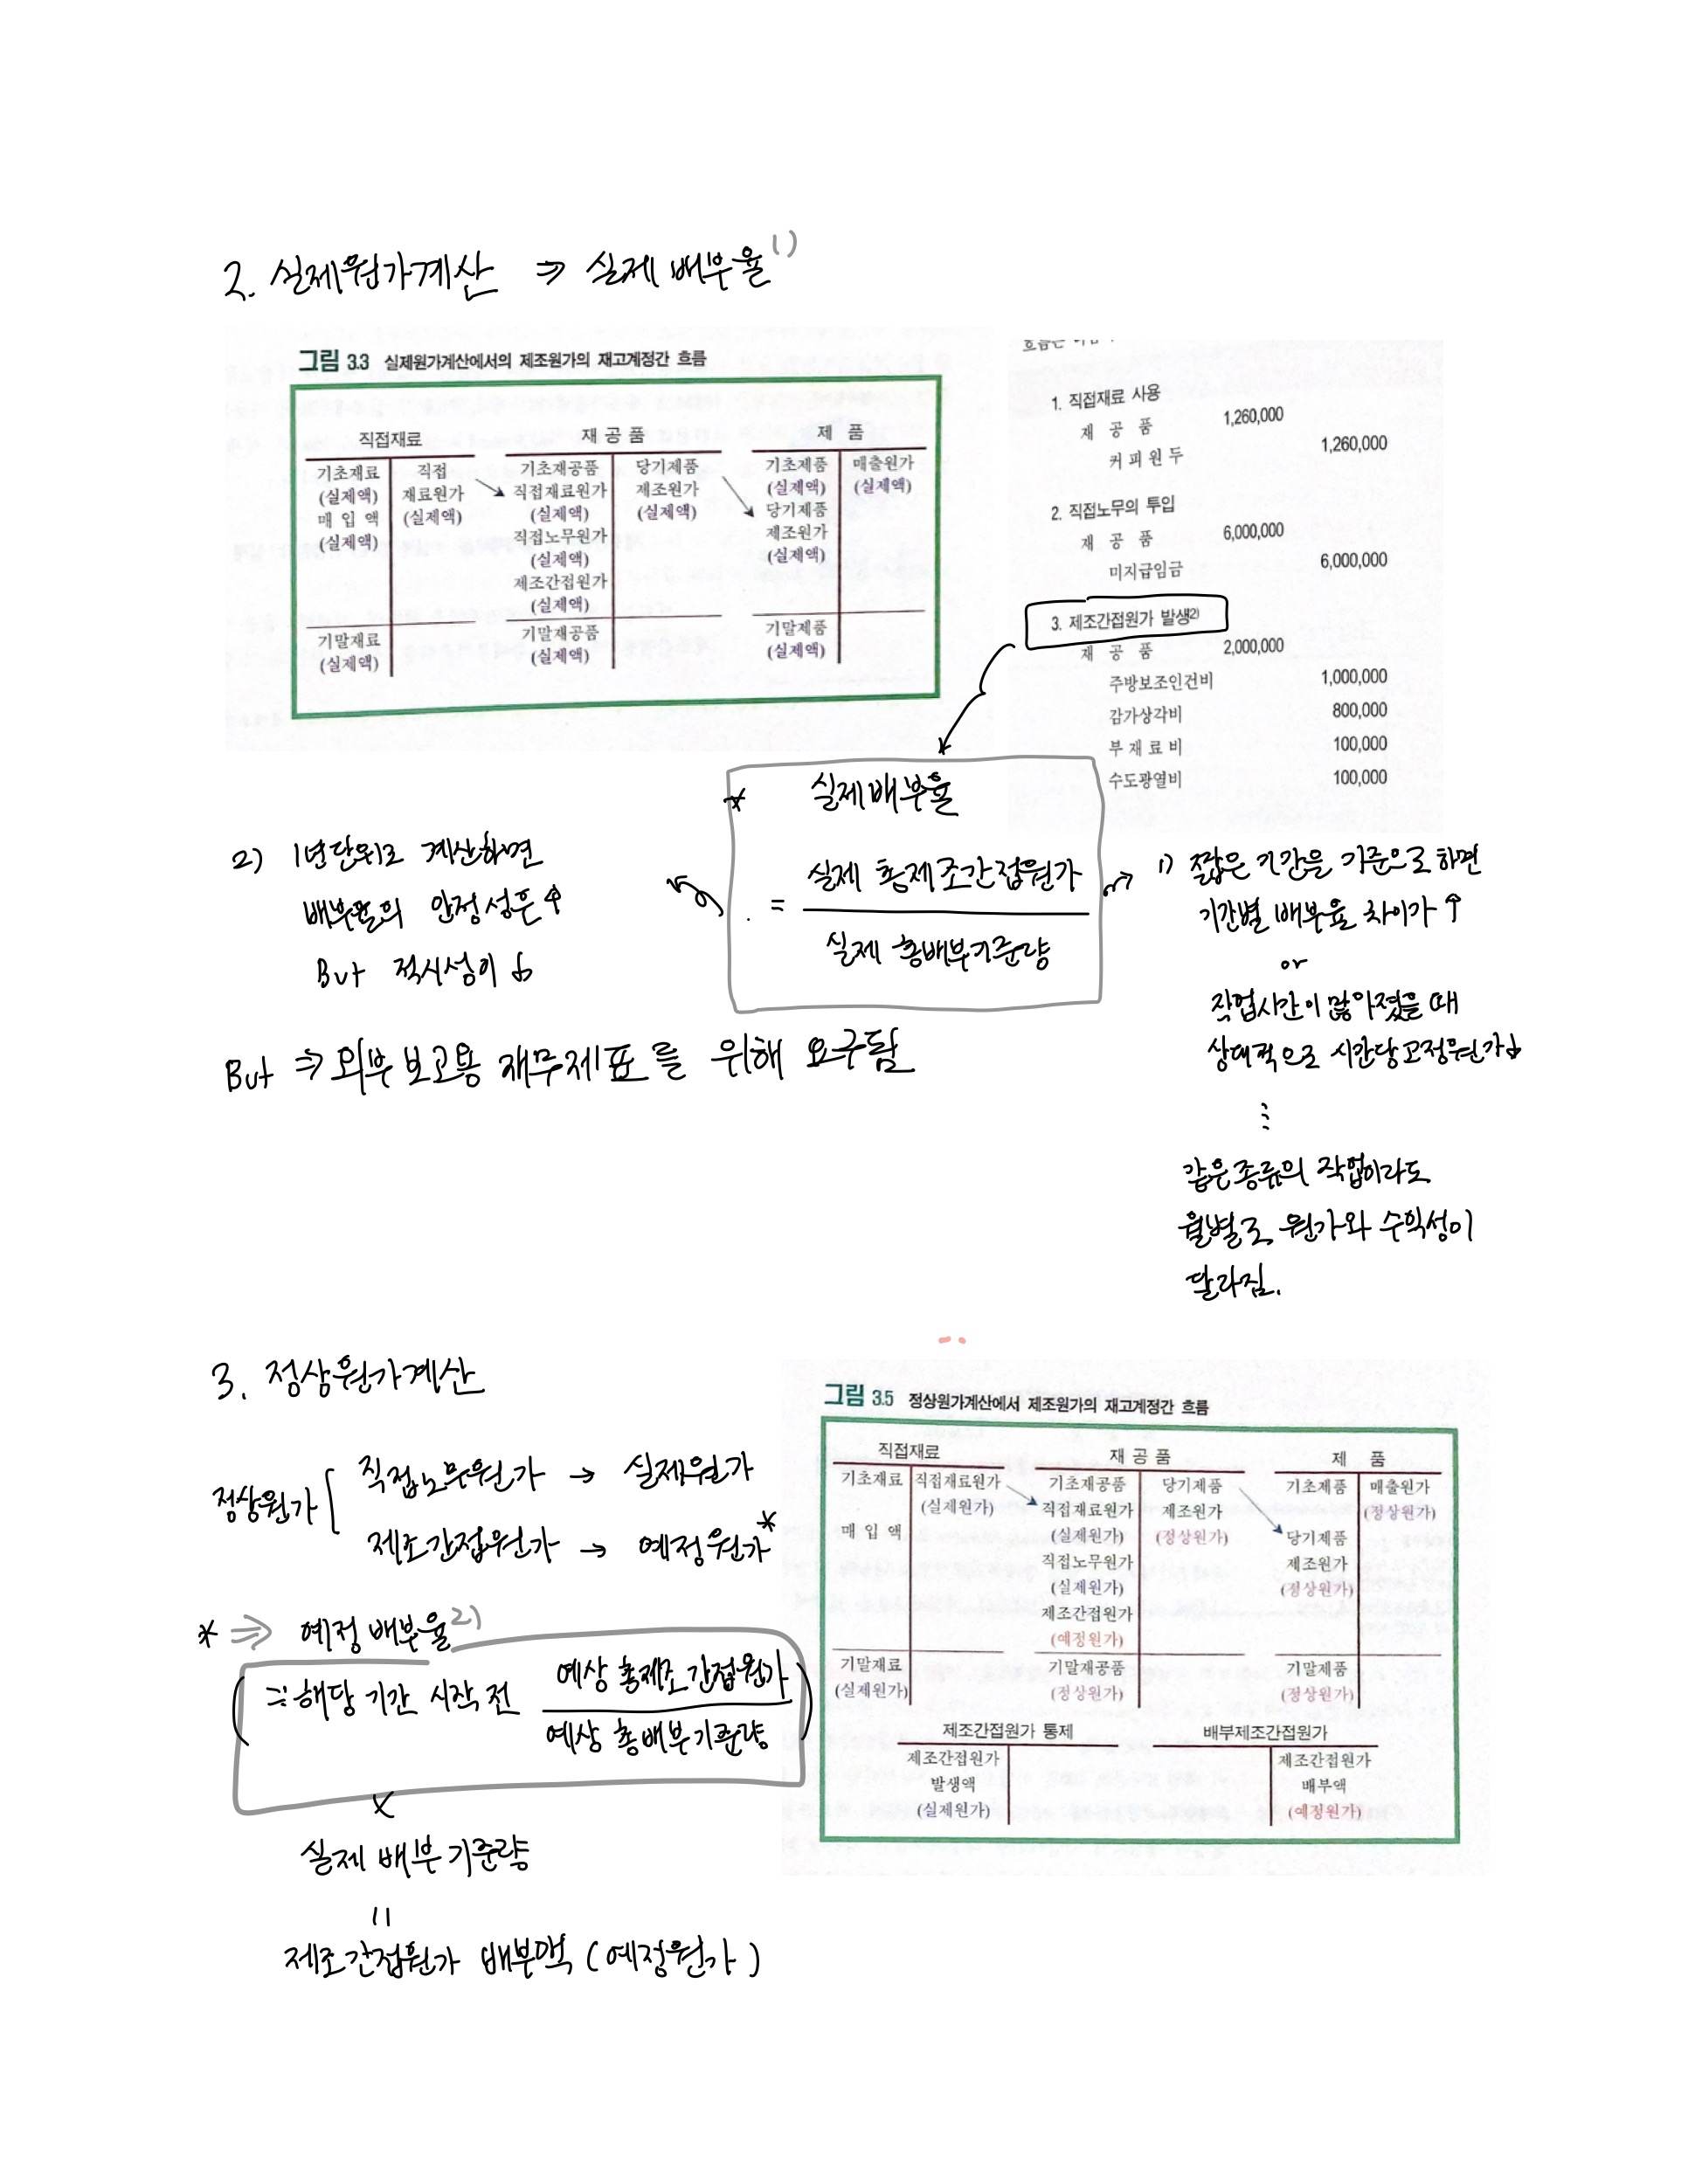 2. 실제원가계산 ⇒ 실제 배부율 1)
그림 3.3 실제원가계산에서의 제조원가의 재고계정간 흐름
직접재료
기초재료 직접
(실제액) 재료원가
매 입 액 (실제액)
(실제액)
기말재료
(실제액)
재 공 품
기초재공품 당기제품
직접재료원가 제조원가
(실제액) (실제액)
직접노무원가
(실제액)
제조간접원가
(실제액)
기말재공품
(실제액)
제 품
기초제품 매출원가
(실제액) (실제액)
당기제품
제조원가
(실제액)
기말제품
(실제액)
1. 직접재료 사용
재 공 품 1,260,000
커피원두 1,260,000
2. 직접노무의 투입
재 공 품 6,000,000
미지급임금 6,000,000
3. 제조간접원가 발생2)
재 공 품 2,000,000
주방보조인건비 1,000,000
감가상각비 800,000
부 재 료 비 100,000
수도광열비 100,000
* 실제배부율
= 실제 총제조간접원가
실제 총배부기준량
2) 1년단위로 계산하면
배부율의 안정성은 ↑
But 적시성이 ↓
But ⇒ 외부 보고용 재무제표를 위해 요구됨
1) 짧은 기간을 기준으로 하면
기간별 배부율 차이가 ↑
or
작업시간이 많아졌을 때
상대적으로 시간당고정원가↓
⋮
같은종류의 작업이라도
월별로 원가와 수익성이
달라짐.
3. 정상원가계산
정상원가
직접노무원가 → 실제원가
제조간접원가 → 예정원가*
* ⇒ 예정 배부율 2)
( ∵ 해당 기간 시작 전 예상 총제조간접원가
예상 총배부기준량 )
×
실제 배부기준량
=
제조간접원가 배부액 (예정원가)
그림 3.5 정상원가계산에서 제조원가의 재고계정간 흐름
직접재료
기초재료 직접재료원가
(실제원가)
매 입 액
기말재료
(실제원가)
재 공 품
기초재공품 당기제품
직접재료원가 제조원가
(실제원가) (정상원가)
직접노무원가
(실제원가)
제조간접원가
(예정원가)
기말재공품
(정상원가)
제 품
기초제품 매출원가
(정상원가)
당기제품
제조원가
(정상원가)
기말제품
(정상원가)
제조간접원가 통제
제조간접원가
발생액
(실제원가)
배부제조간접원가
제조간접원가
배부액
(예정원가)